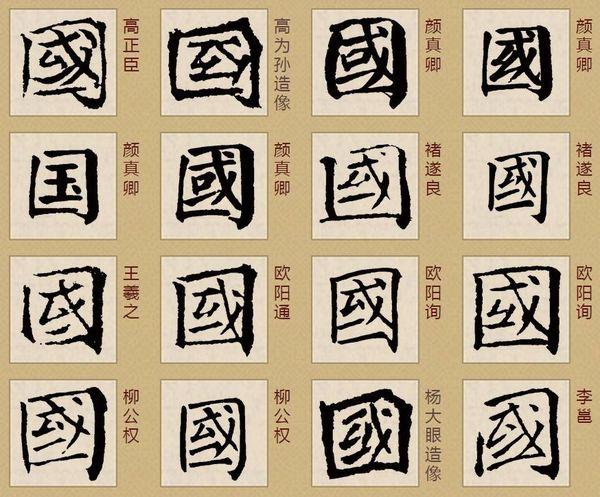 國
高正臣
高为孙造像
國
颜真卿
國
颜真卿
国
颜真卿
國
颜真卿
國
褚遂良
國
褚遂良
國
王羲之
國
欧阳通
國
欧阳询
國
欧阳询
國
柳公权
國
柳公权
國
杨大眼造像
國
李邕